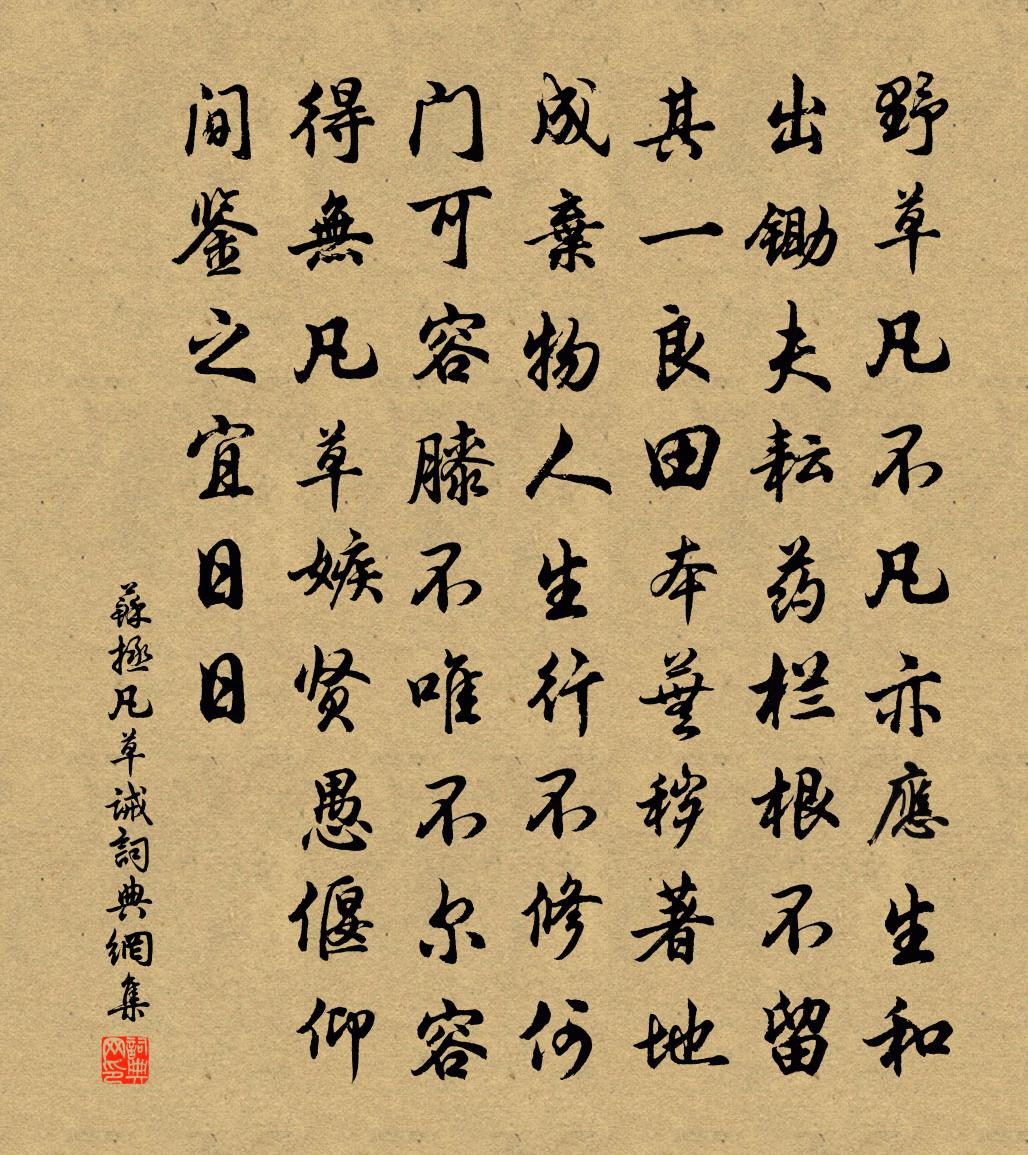 野草凡不凡亦應生和
出鋤夫耘药栏根不留
其一良田本蕪秽著地
成棄物人生行不修何
门可容膝不唯不尔容
得無凡草嫉贤愚偃仰
间鉴之宜日日
蘇拯凡草诫詞典網集
詞典网印